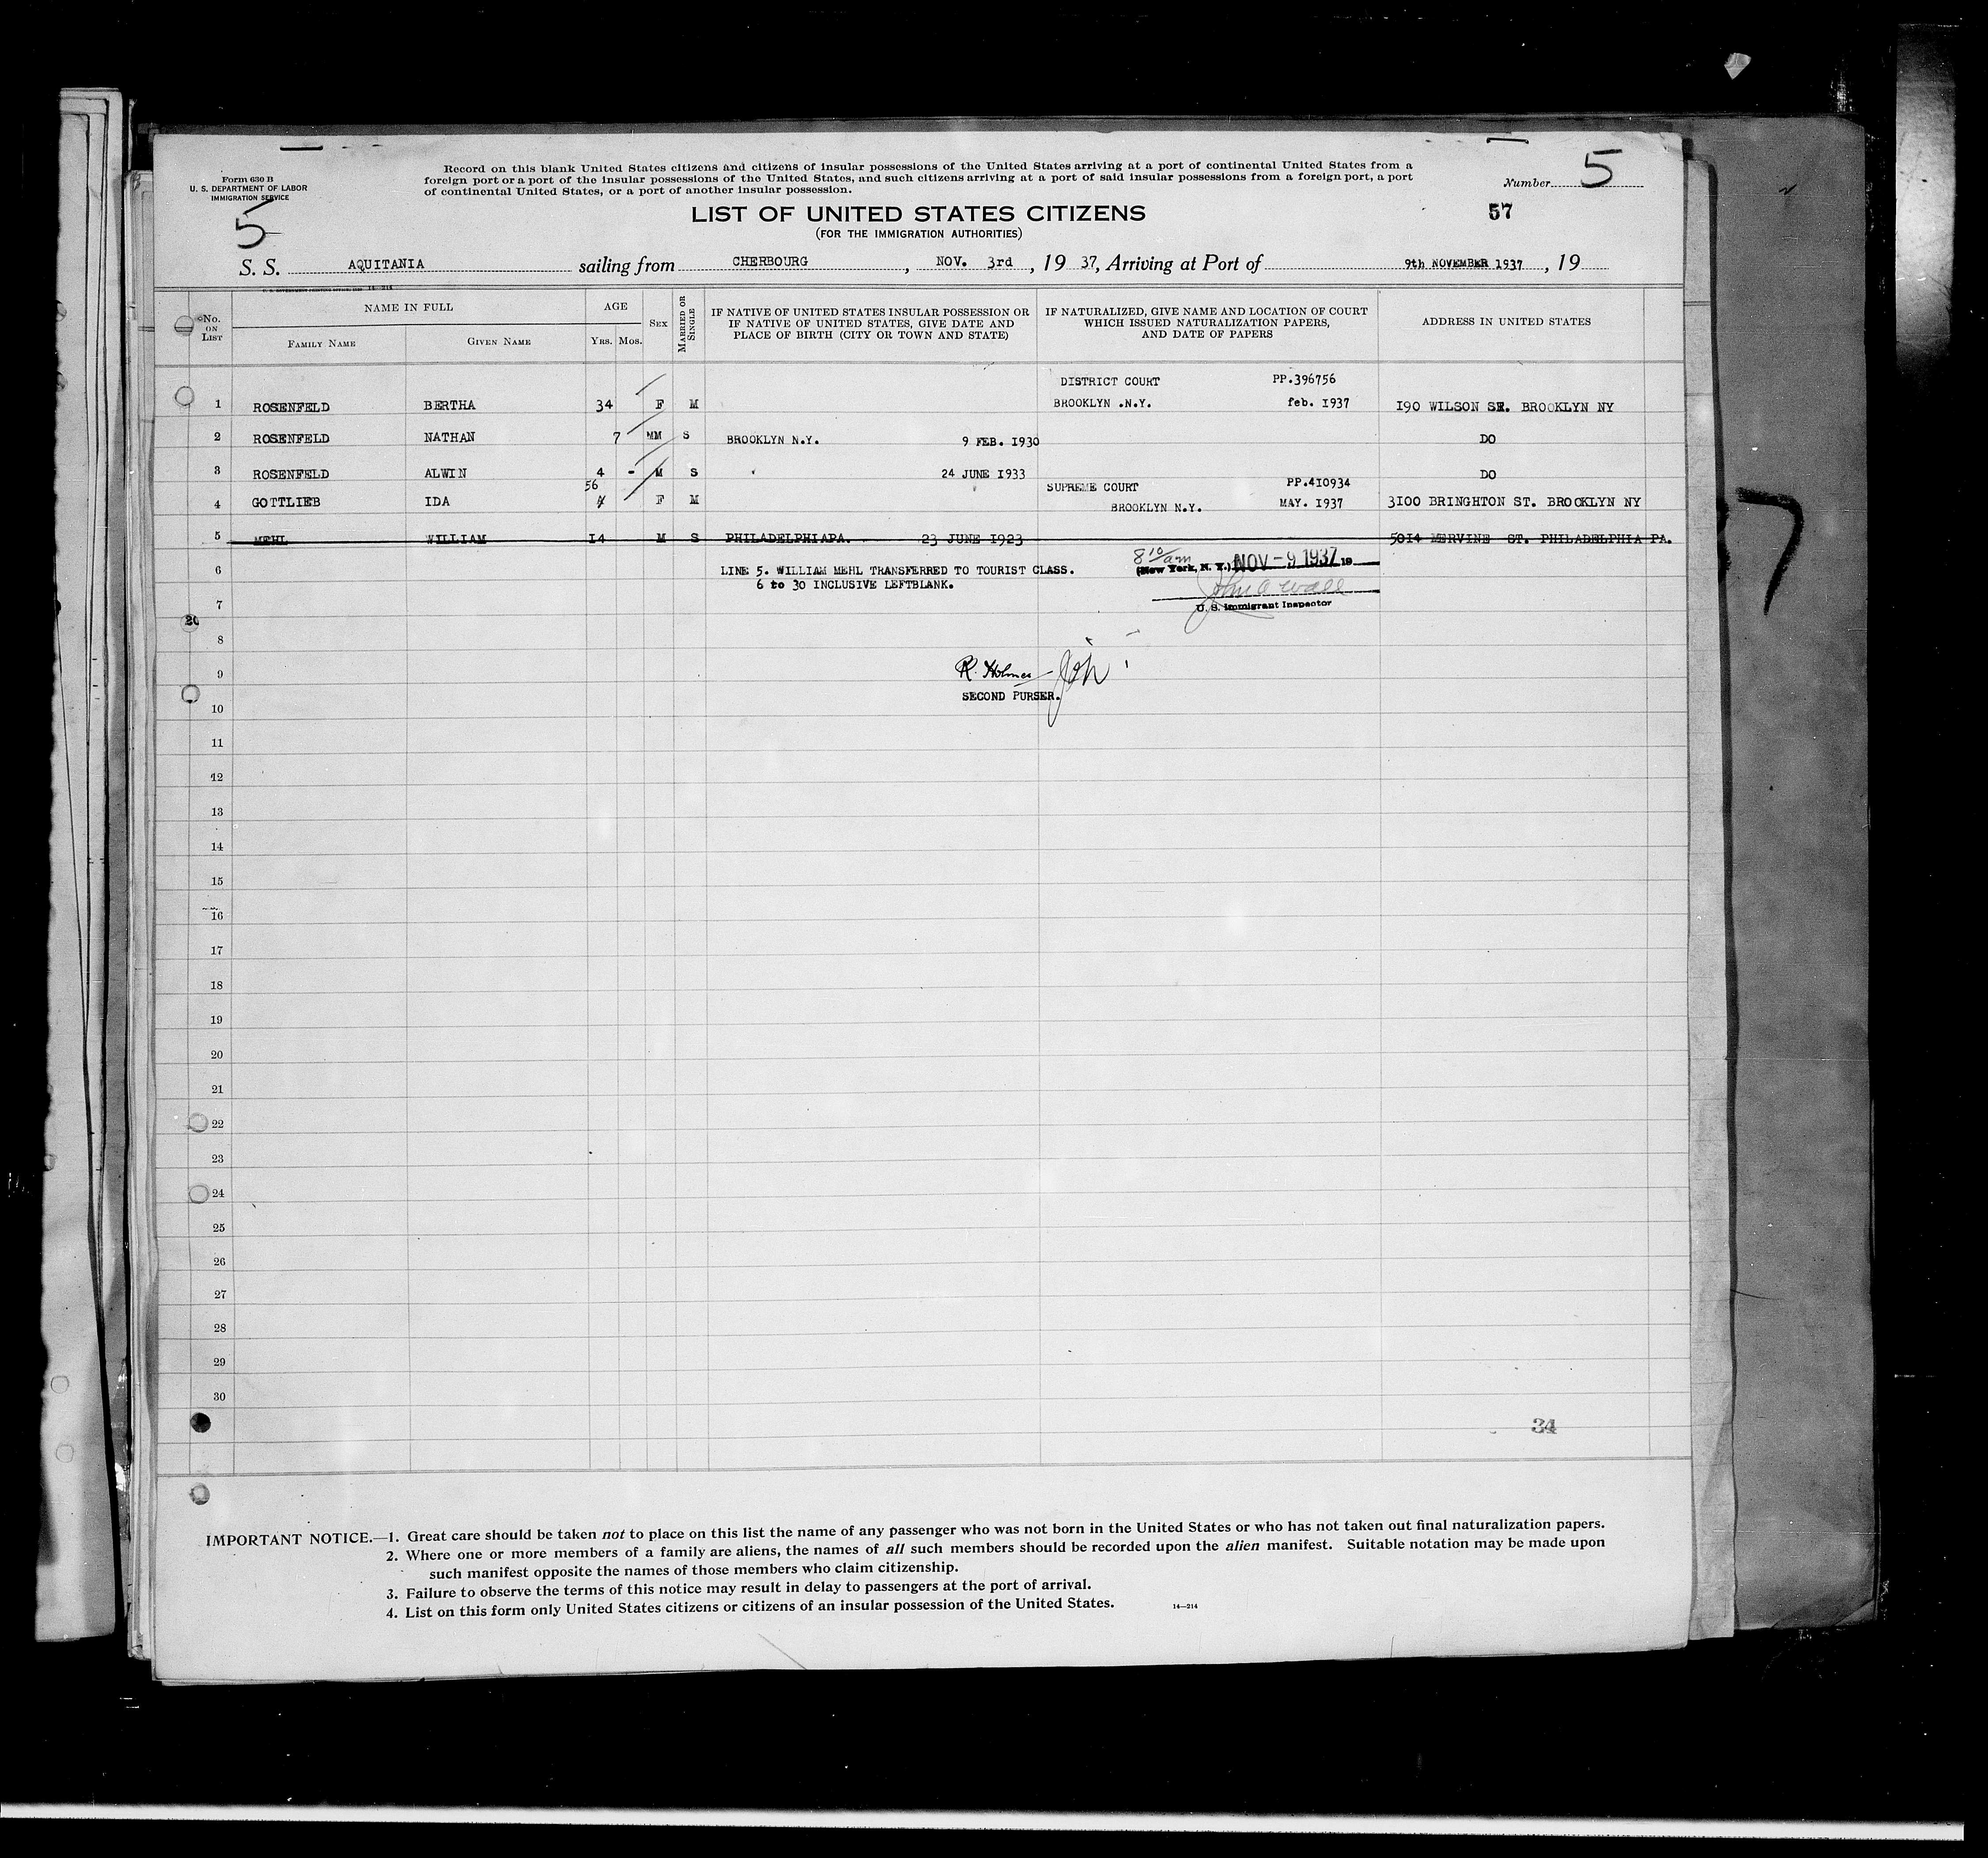 Form 630 B
U. S. DEPARTMENT OF LABOR
IMMIGRATION SERVICE
5
Record on this blank United States citizens and citizens of insular possessions of the United States arriving at a port of continental United States from a
foreign port or a port of the insular possessions of the United States, and such citizens arriving at a port of said insular possessions from a foreign port, a port
of continental United States, or a port of another insular possession.
Number 5
57
LIST OF UNITED STATES CITIZENS
(FOR THE IMMIGRATION AUTHORITIES)
S. S. AQUITANIA sailing from CHERBOURG , NOV. 3rd , 19 37, Arriving at Port of 9th NOVEMBER 1937 , 19
No. ON LIST
NAME IN FULL
FAMILY NAME GIVEN NAME
AGE
YRS. MOS.
SEX
MARRIED OR SINGLE
IF NATIVE OF UNITED STATES INSULAR POSSESSION OR
IF NATIVE OF UNITED STATES, GIVE DATE AND
PLACE OF BIRTH (CITY OR TOWN AND STATE)
IF NATURALIZED, GIVE NAME AND LOCATION OF COURT
WHICH ISSUED NATURALIZATION PAPERS,
AND DATE OF PAPERS
ADDRESS IN UNITED STATES
DISTRICT COURT PP.396756
1 ROSENFELD BERTHA 34 F M BROOKLYN .N.Y. feb. 1937 190 WILSON ST. BROOKLYN NY
2 ROSENFELD NATHAN 7 MM S BROOKLYN N.Y. 9 FEB. 1930 DO
3 ROSENFELD ALWIN 4 - M S " 24 JUNE 1933 DO
56 SUPREME COURT PP.410934
4 GOTTLIEB IDA F M BROOKLYN N.Y. MAY. 1937 3100 BRINGHTON ST. BROOKLYN NY
5 MEHL WILLIAM 14 M S PHILADELPHIAPA. 23 JUNE 1923 5014 MERVINE ST. PHILADELPHIA PA.
8 10/am (New York, N. Y.) NOV - 9 1937 19
6 LINE 5. WILLIAM MEHL TRANSFERRED TO TOURIST CLASS.
6 to 30 INCLUSIVE LEFTBLANK.
John A Wall
U. S. Immigrant Inspector
7
20
8
9 R. Holmes
SECOND PURSER.
10
11
12
13
14
15
16
17
18
19
20
21
22
23
24
25
26
27
28
29
30
34
IMPORTANT NOTICE.—1. Great care should be taken not to place on this list the name of any passenger who was not born in the United States or who has not taken out final naturalization papers.
2. Where one or more members of a family are aliens, the names of all such members should be recorded upon the alien manifest. Suitable notation may be made upon
such manifest opposite the names of those members who claim citizenship.
3. Failure to observe the terms of this notice may result in delay to passengers at the port of arrival.
4. List on this form only United States citizens or citizens of an insular possession of the United States.
14—214
7